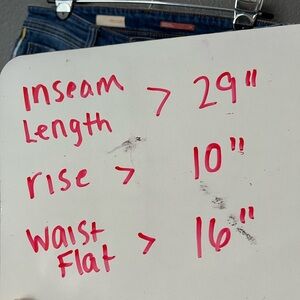 Inseam Length > 29"
rise > 10"
Waist Flat > 16"